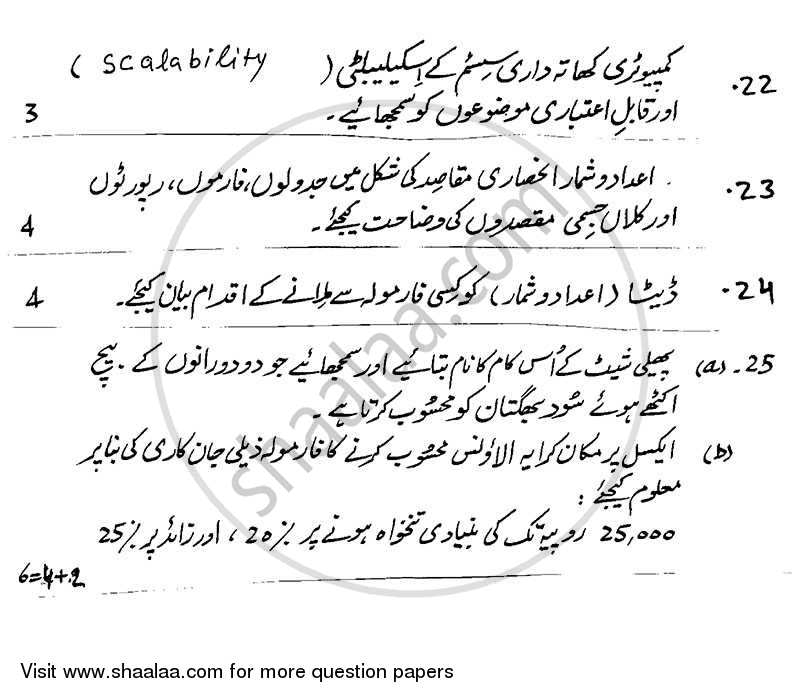 22. کمپیوٹری کھاتہ داری سسٹم کے اسکیلیبلٹی ( Scalability )
اور قابلِ اعتباری موضوعوں کو سمجھائیے۔ 3
23. اعداد و شمار انحصاری مقاصد کی شکل میں جدولوں، فارموں، رپورٹوں
اور کلاں جسمی مقصدوں کی وضاحت کیجئے۔ 4
24. ڈیٹا (اعداد و شمار) کو کسی فارمولہ سے ملانے کے اقدام بیان کیجئے۔ 4
25. (a) پھیلی شیٹ کے اُس کام کا نام بتائیے اور سمجھائیے جو دو دورانوں کے بیچ
اکٹھے ہوئے سُود بھگتان کو محسُوب کرتا ہے۔
(b) ایکسل پر مکان کرایہ الاؤنس محسُوب کرنے کا فارمولہ ذیلی جان کاری کی بنا پر
معلوم کیجئے :
25,000 روپیہ تک کی بنیادی تنخواہ ہونے پر 20٪ ، اور زائد پر 25٪
6=4+2
shaalaa.com
Visit www.shaalaa.com for more question papers